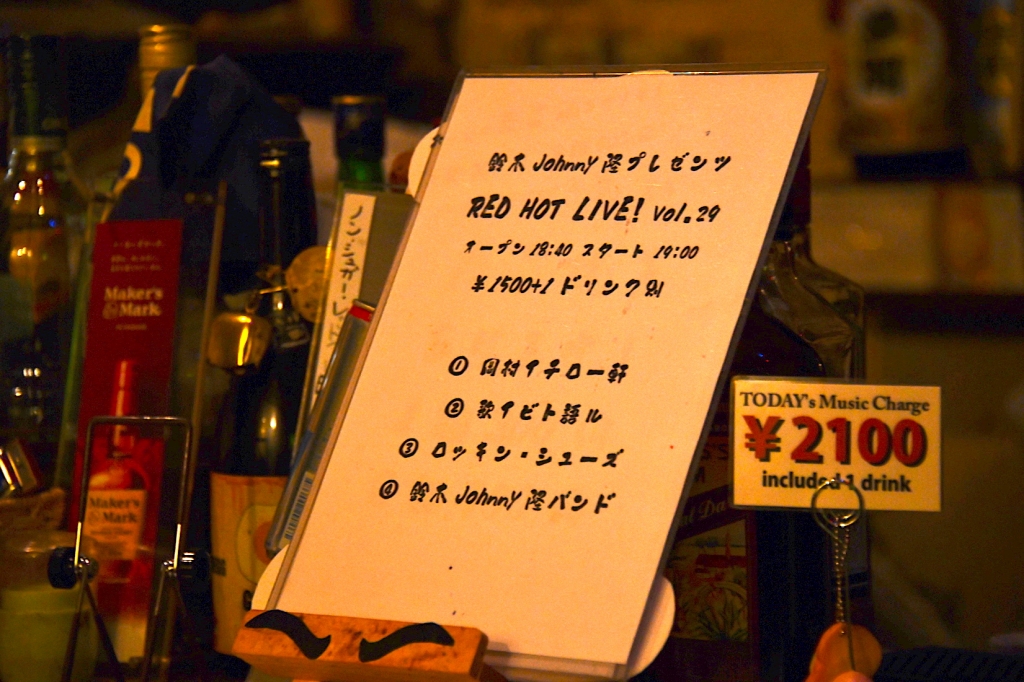 鈴木 Johnny 隆プレゼンツ
RED HOT LIVE! vol.29
オープン 18:40 スタート 19:00
¥1500+1ドリンク別
① 岡村イチロー軒
② 歌イビト語ル
③ ロッキン・シューズ
④ 鈴木 Johnny 隆バンド
TODAY's Music Charge
¥2100
included 1 drink
Maker's
Mark
Maker's
Mark
ノンシュガー